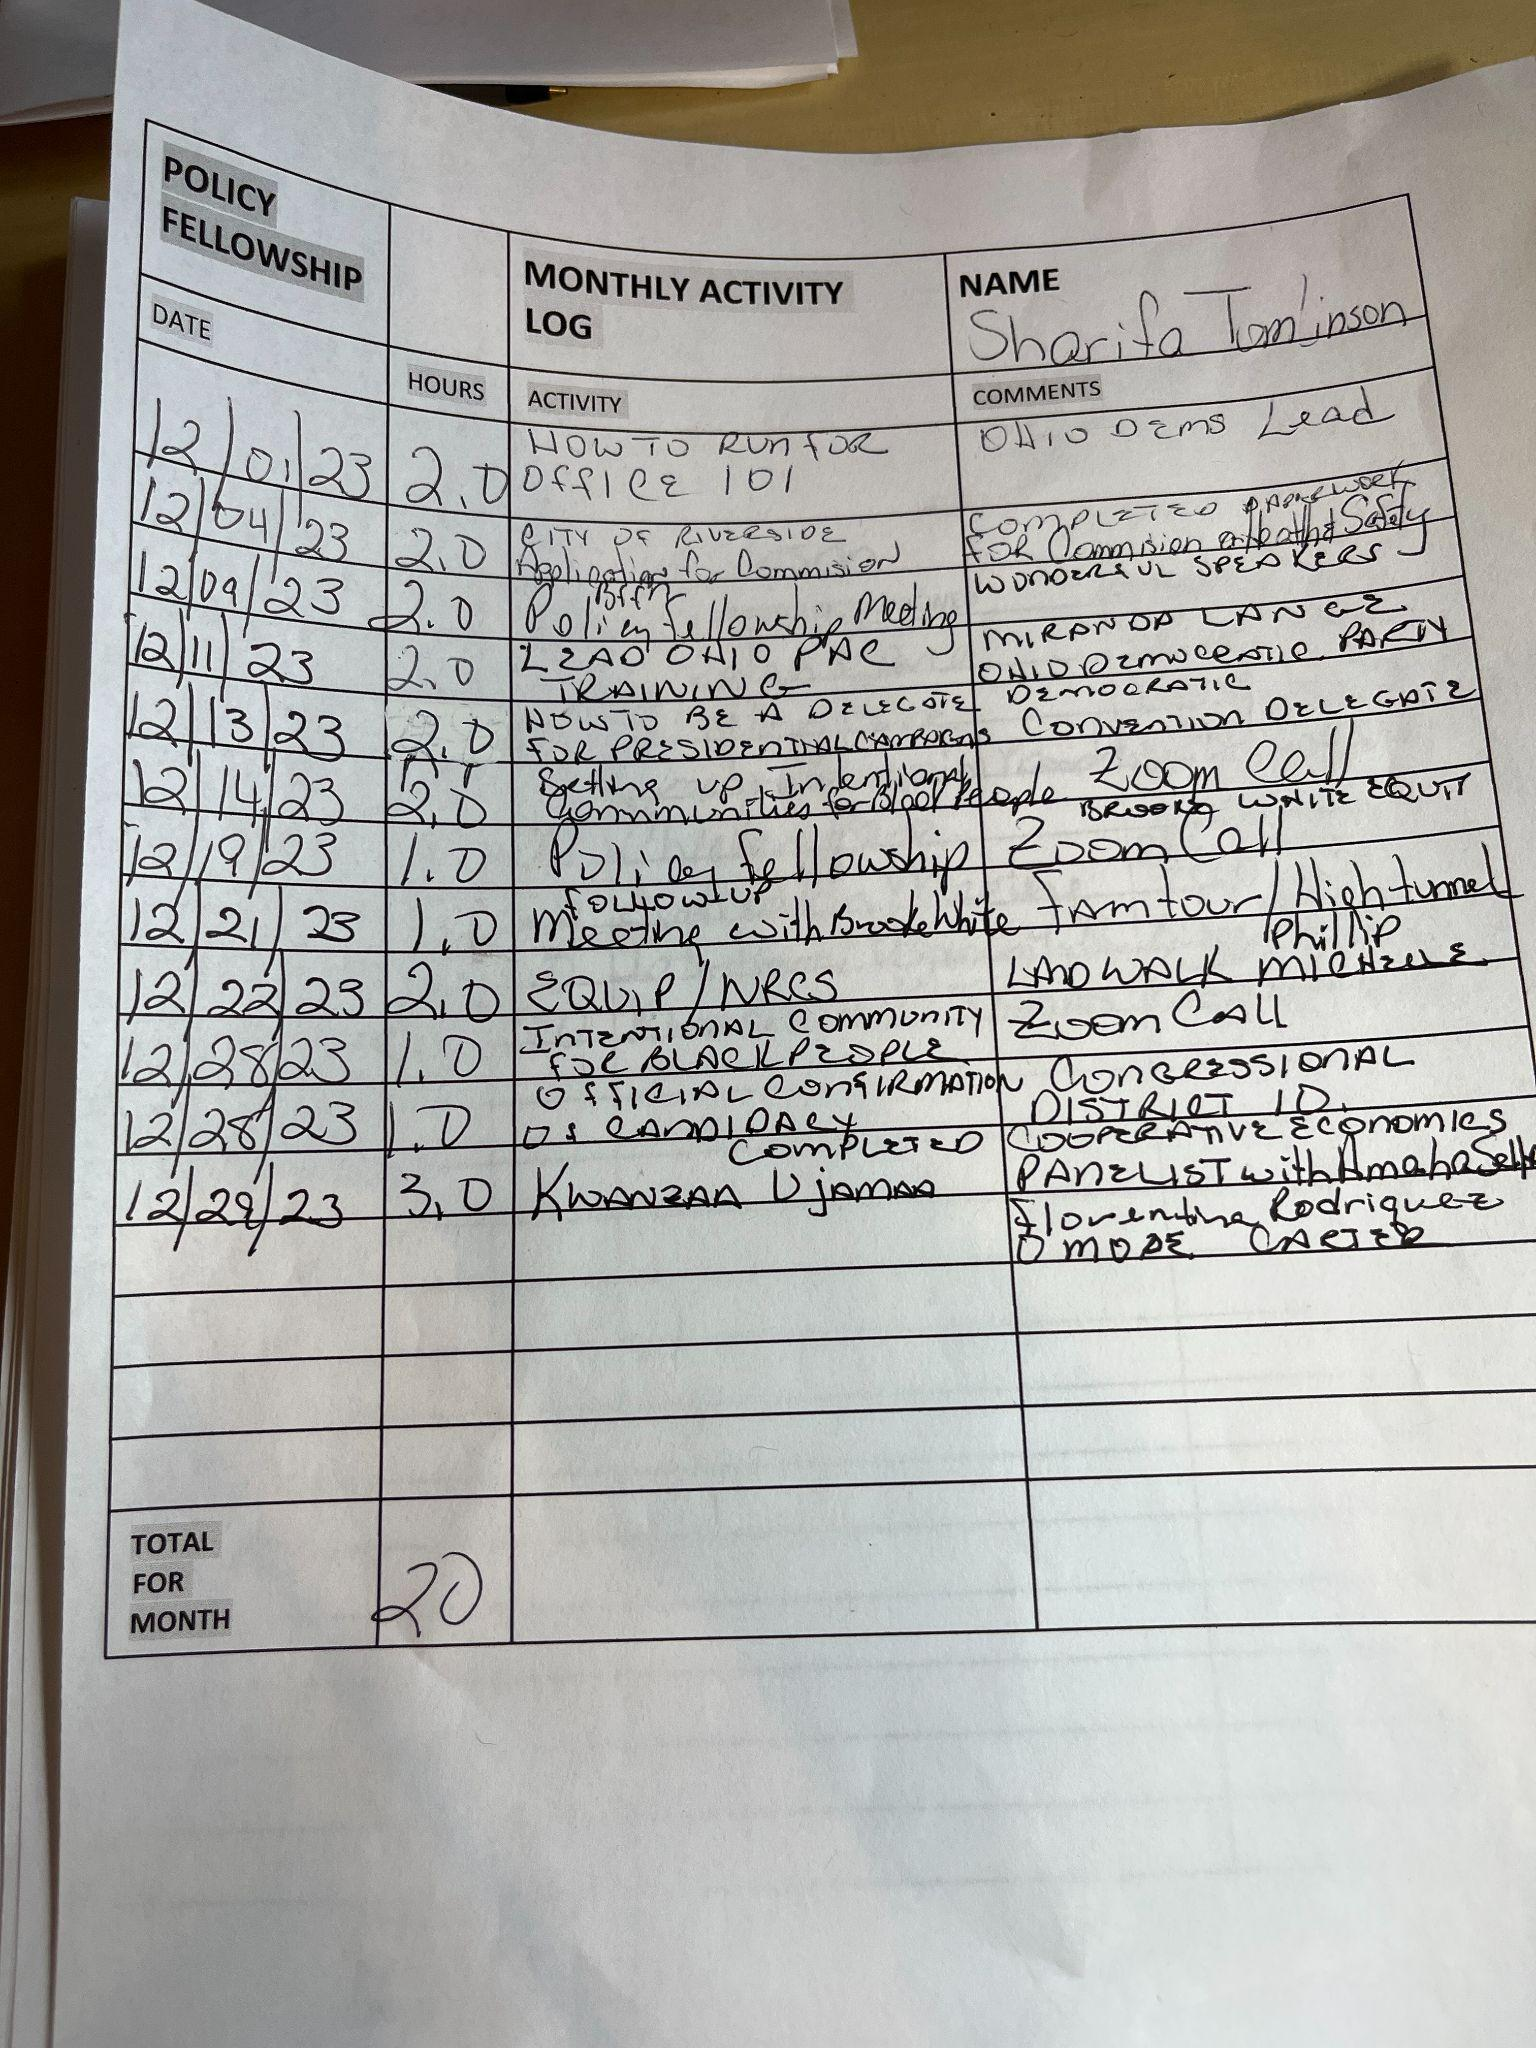 POLICY
FELLOWSHIP
MONTHLY ACTIVITY
LOG
NAME
Sharifa Tomlinson
DATE
HOURS
ACTIVITY
COMMENTS
12/01/23 2.0 HOW TO RUN FOR
OFFICE 101
OHIO DEMS Lead
12/04/23 2.0 CITY OF RIVERSIDE
Application for Commision
COMPLETED PAPERWORK
FOR Commision Safety
12/09/23 2.0 BFFN
Policy fellowship Meeting
WONDERFUL SPEAKERS
12/11/23 2.0 LEAD OHIO PAC
TRAINING
MIRANDA LANGE
OHIO DEMOCRATIC PARTY
12/13/23 2.0 HOW TO BE A DELEGATE
FOR PRESIDENTIAL CAMPAIGNS
DEMOCRATIC
CONVENTION DELEGATE
12/14/23 2.0 Setting up Intentional
Communities for Black People
Zoom Call
12/19/23 1.0 Policy fellowship
BROOKE WHITE EQUIT
Zoom Call
12/21/23 1.0 FOLLOW UP
Meeting with Brooke White
Farm tour/High tunnel
12/22/23 2.0 EQUIP/NRCS
Phillip
LAND WALK MICHELLE
12/28/23 1.0 INTENTIONAL COMMUNITY
FOR BLACK PEOPLE
Zoom CALL
12/28/23 1.0 OFFICIAL CONFIRMATION
OF CANDIDACY
COMPLETED
CONGRESSIONAL
DISTRICT 10.
12/29/23 3.0 KWANZAA UJAMAA
COOPERATIVE ECONOMICS
PANELIST with Amaha
Florentina Rodriquez
OMOPE CARTER
TOTAL
FOR
MONTH
20